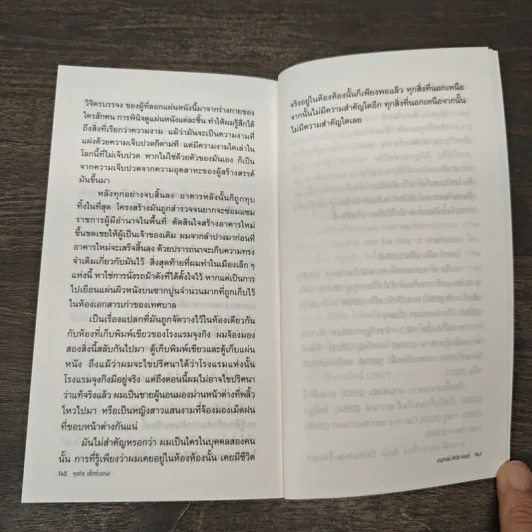 วิจิตรบรรจง ของผู้ที่ลอกแผ่นหนังนี้มาจากร่างกายของ
ใครสักคน การพินิจดูแผ่นหนังแต่ละชิ้น ทำให้ผมรู้สึกได้
ถึงสิ่งที่เรียกว่าความงาม แม้ว่ามันจะเป็นความงามที่
แฝงด้วยความเจ็บปวดก็ตามที แต่มีความงามใดเล่าใน
โลกนี้ที่ไม่เจ็บปวด หากไม่ใช่ด้วยตัวของมันเอง ก็เป็น
จากความเจ็บปวดจากความอุตสาหะของผู้สร้างสรรค์
มันขึ้นมา
หลังทุกอย่างจบสิ้นลง อาคารหลังนั้นก็ถูกทุบ
ทิ้งในที่สุด โครงสร้างมันถูกสำรวจจนยากจะซ่อมแซม
ราชการผู้มีอำนาจในพื้นที่ ตัดสินใจสร้างอาคารใหม่
ขึ้นชดเชยให้ผู้เป็นเจ้าของเดิม ผมจากลำปางมาก่อนที่
อาคารใหม่จะเสร็จสิ้นลง ด้วยปรารถนาจะเก็บความทรง
จำเดิมเกี่ยวกับมันไว้ สิ่งสุดท้ายที่ผมทำในเมืองเล็ก ๆ
แห่งนี้ หาใช่การนั่งรถม้าดังที่ได้ตั้งใจไว้ หากแต่เป็นการ
ไปเยือนแผ่นผิวหนังบนซากปูนจำนวนมากที่ถูกเก็บไว้
ในห้องเอกสารเก่าของเทศบาล
เป็นเรื่องแปลกที่มันถูกจัดวางไว้ในห้องเดียวกัน
กับห้องที่เก็บพิมพ์เขียวของโรงแรมจุงกิง ผมจ้องมอง
สองสิ่งนี้สลับกันไปมา ตู้เก็บพิมพ์เขียวและตู้เก็บแผ่น
หนัง ถึงแม้ว่าผมจะไขปริศนาได้ว่าโรงแรมแห่งนั้น
โรงแรมจุงกิงมีอยู่จริง แต่ถึงตอนนี้ผมไม่อาจไขปริศนา
ว่าแท้จริงแล้ว ผมเป็นชายผู้นอนมองม่านหน้าต่างที่พลิ้ว
ไหวไปมา หรือเป็นหญิงสาวแสนงามที่จ้องมองเม็ดฝน
ที่ขอบหน้าต่างกันแน่
มันไม่สำคัญหรอกว่า ผมเป็นใครในบุคคลสองคน
นั้น การที่รู้เพียงว่าผมเคยอยู่ในห้องห้องนั้น เคยมีชีวิต
จริงอยู่ในห้องห้องนั้นก็เพียงพอแล้ว ทุกสิ่งที่นอกเหนือ
จากนั้นไม่มีความสำคัญใดอีก ทุกสิ่งที่นอกเหนือจากนั้น
ไม่มีความสำคัญใดเลย